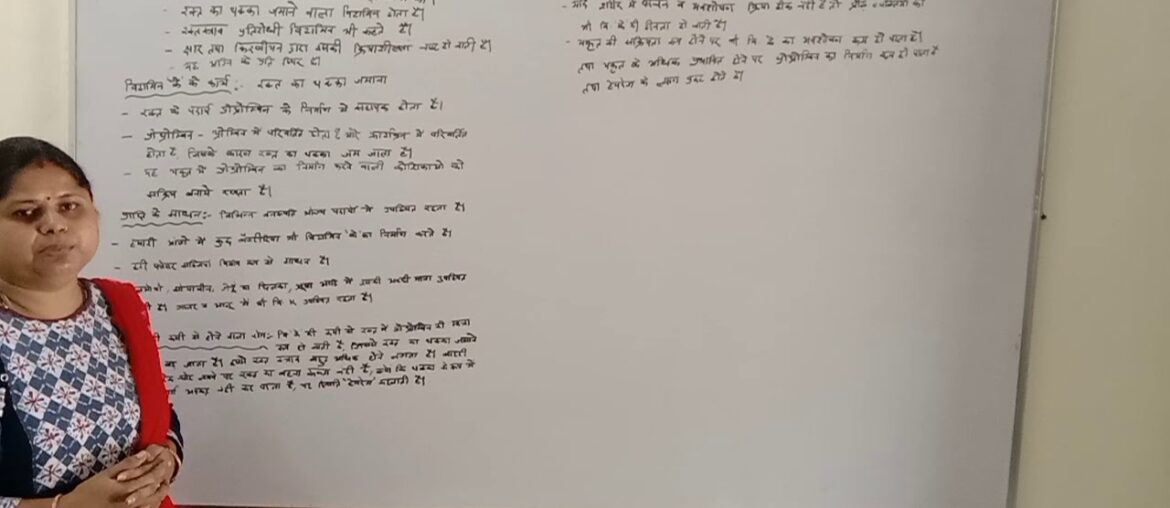 - रक्त का थक्का जमाने वाला विटामिन होता है।
- रक्तस्त्राव प्रतिरोधी विटामिन भी कहते हैं।
- क्षार तथा किरणीयन द्वारा इसकी क्रियाशीलता नष्ट हो जाती है।
- यह के प्रति स्थिर है।
विटामिन 'के' के कार्य :- रक्त का थक्का जमाना
- रक्त के पदार्थ प्रोथ्रोम्बिन के निर्माण में सहायक होता है।
- प्रोथ्रोम्बिन - थ्रोम्बिन में परिवर्तित होता है और फाइब्रिन में परिवर्तित
होता है, जिसके कारण रक्त का थक्का जम जाता है।
- यह यकृत में प्रोथ्रोम्बिन का निर्माण करने वाली कोशिकाओं को
सक्रिय बनाये रखता है।
प्राप्ति के साधन :- विभिन्न वनस्पति भोज्य पदार्थों में उपस्थित रहता है।
- हमारी आंतों में कुछ बैक्टीरिया भी विटामिन 'के' का निर्माण करते हैं।
- हरी पत्तेदार सब्जियां के साधन हैं।
सोयाबीन, गेहूं का छिलका, आदि में अच्छी मात्रा उपस्थित
है। गाजर व आलू में भी वि K उपस्थित रहता है।
कमी से होने वाला रोग :- वि के की कमी से रक्त में प्रोथ्रोम्बिन की मात्रा
कम हो जाती है, जिससे रक्त का थक्का
जाता है। रक्त स्त्राव बहुत अधिक होने लगता है।
चोट लगने पर रक्त का बहना नहीं है, क्योंकि थक्का के रूप में
नहीं कर पाता है, यह स्थिति कहलाती है।
- यदि शरीर में पाचन व अवशोषण क्रिया ठीक नहीं है तो
भी वि. के की हीनता हो जाती है।
- यकृत की सक्रियता कम होने पर भी वि के का अवशोषण कम हो पाता है।
तथा यकृत के अधिक होने पर प्रोथ्रोम्बिन का निर्माण कम हो पाता है
तथा के लक्षण प्रकट होते हैं।